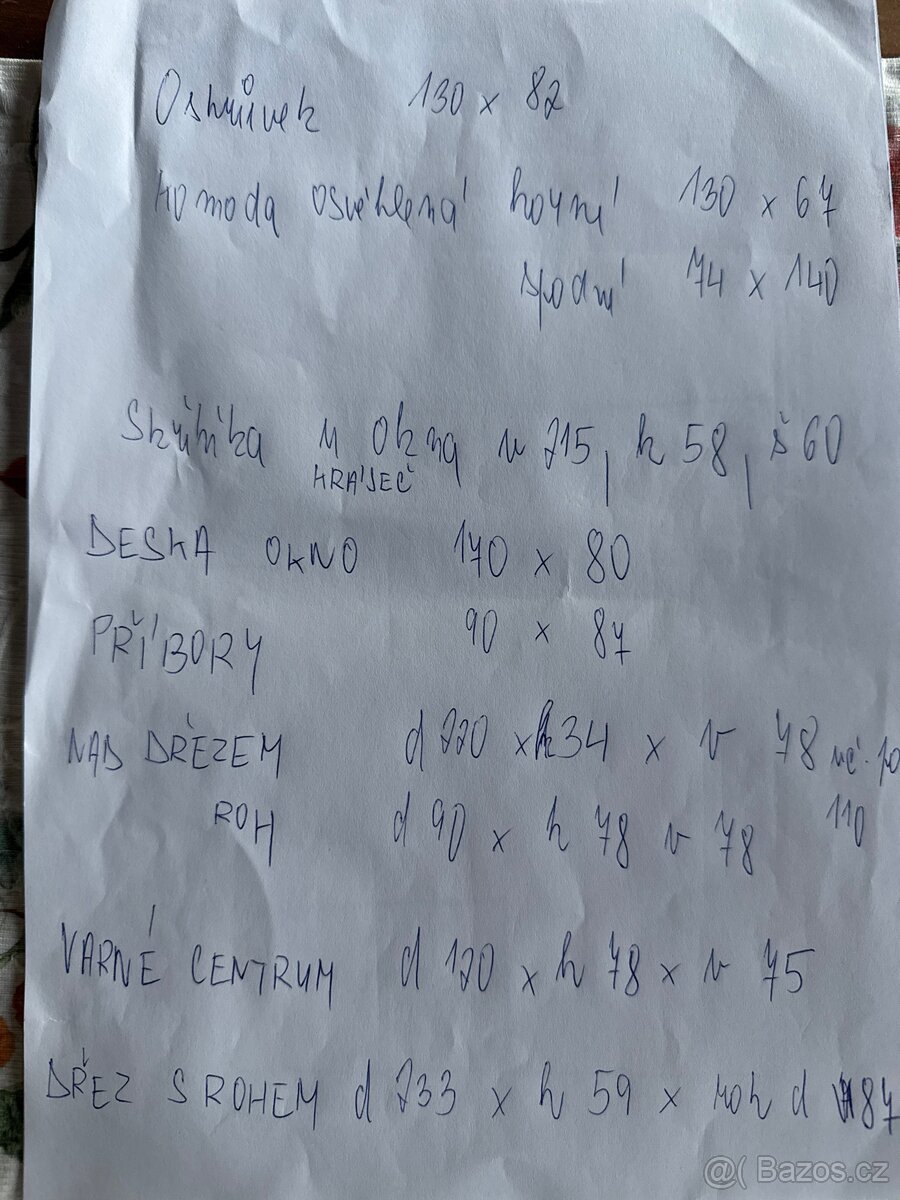 Ostrůvek 130 x 82
Komoda osvětlená horní 130 x 67
spodní 74 x 140
Skříňka u okna v 215, h 58, š 60
DESKA OKNO 140 x 80
PŘÍBORY 90 x 87
NAD DŘEZEM d 220 x h 34 x v 78
110
ROH d 90 x h 78 v 78
VARNÉ CENTRUM d 120 x h 78 x v 75
DŘEZ S ROHEM d 233 x h 59 x roh d 187
@( Bazos.cz